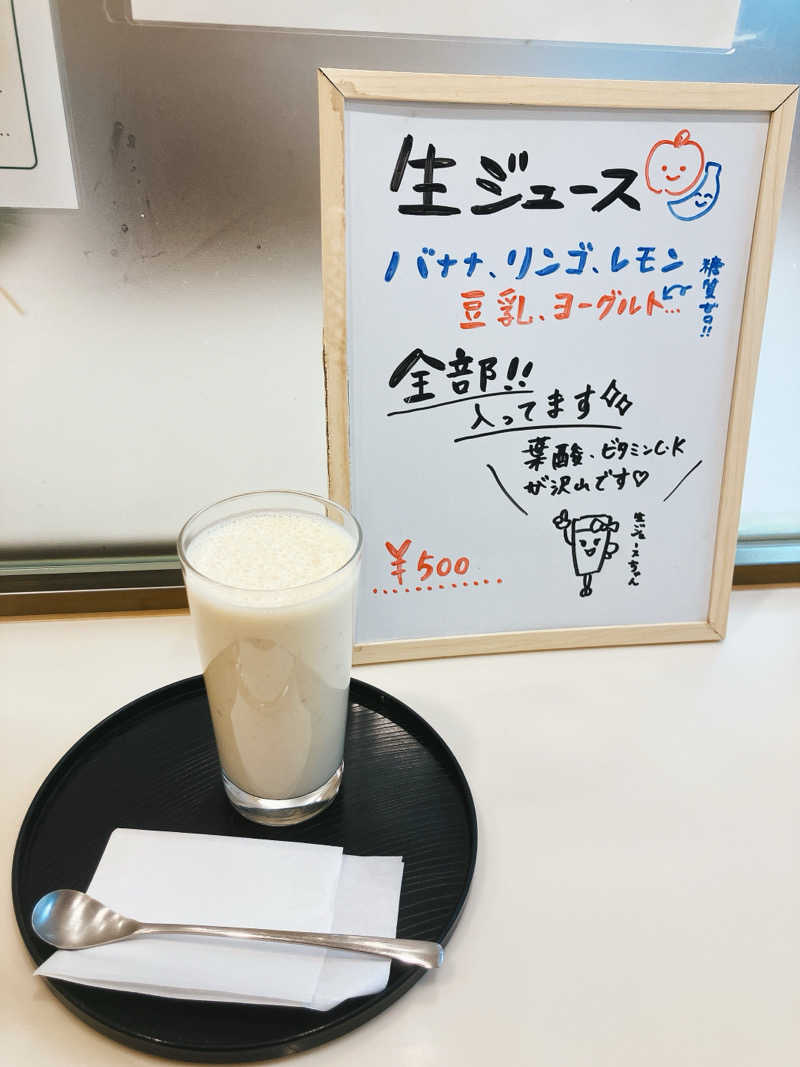 生ジュース
バナナ、リンゴ、レモン
豆乳、ヨーグルト…
糖質ゼロ!!
全部!!
入ってます
葉酸、ビタミンC・K
が沢山です♡
生ジュースちゃん
¥500